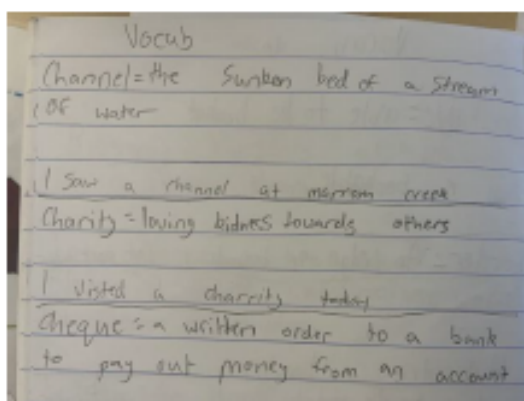 Vocab
Channel = the Sunken bed of a Stream
OF water
I Saw a channel at creek
Charity = loving kidness towards others
I visted a charrity today
Cheque = a written order to a bank
to pay out money from an account